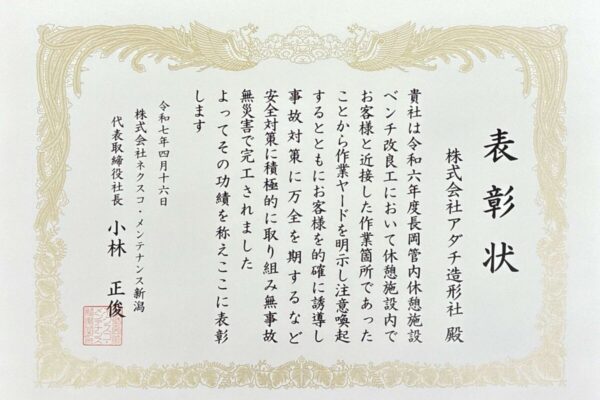 表彰状
株式会社アダチ造形社 殿
貴社は令和六年度長岡管内休憩施設
ベンチ改良工において休憩施設内で
お客様と近接した作業箇所であった
ことから作業ヤードを明示し注意喚起
するとともにお客様を的確に誘導し
事故対策に万全を期するなど
安全対策に積極的に取り組み無事故
無災害で完工されました
よってその功績を称えここに表彰
します
令和七年四月十六日
株式会社ネクスコ・メンテナンス新潟
代表取締役社長 小林 正俊